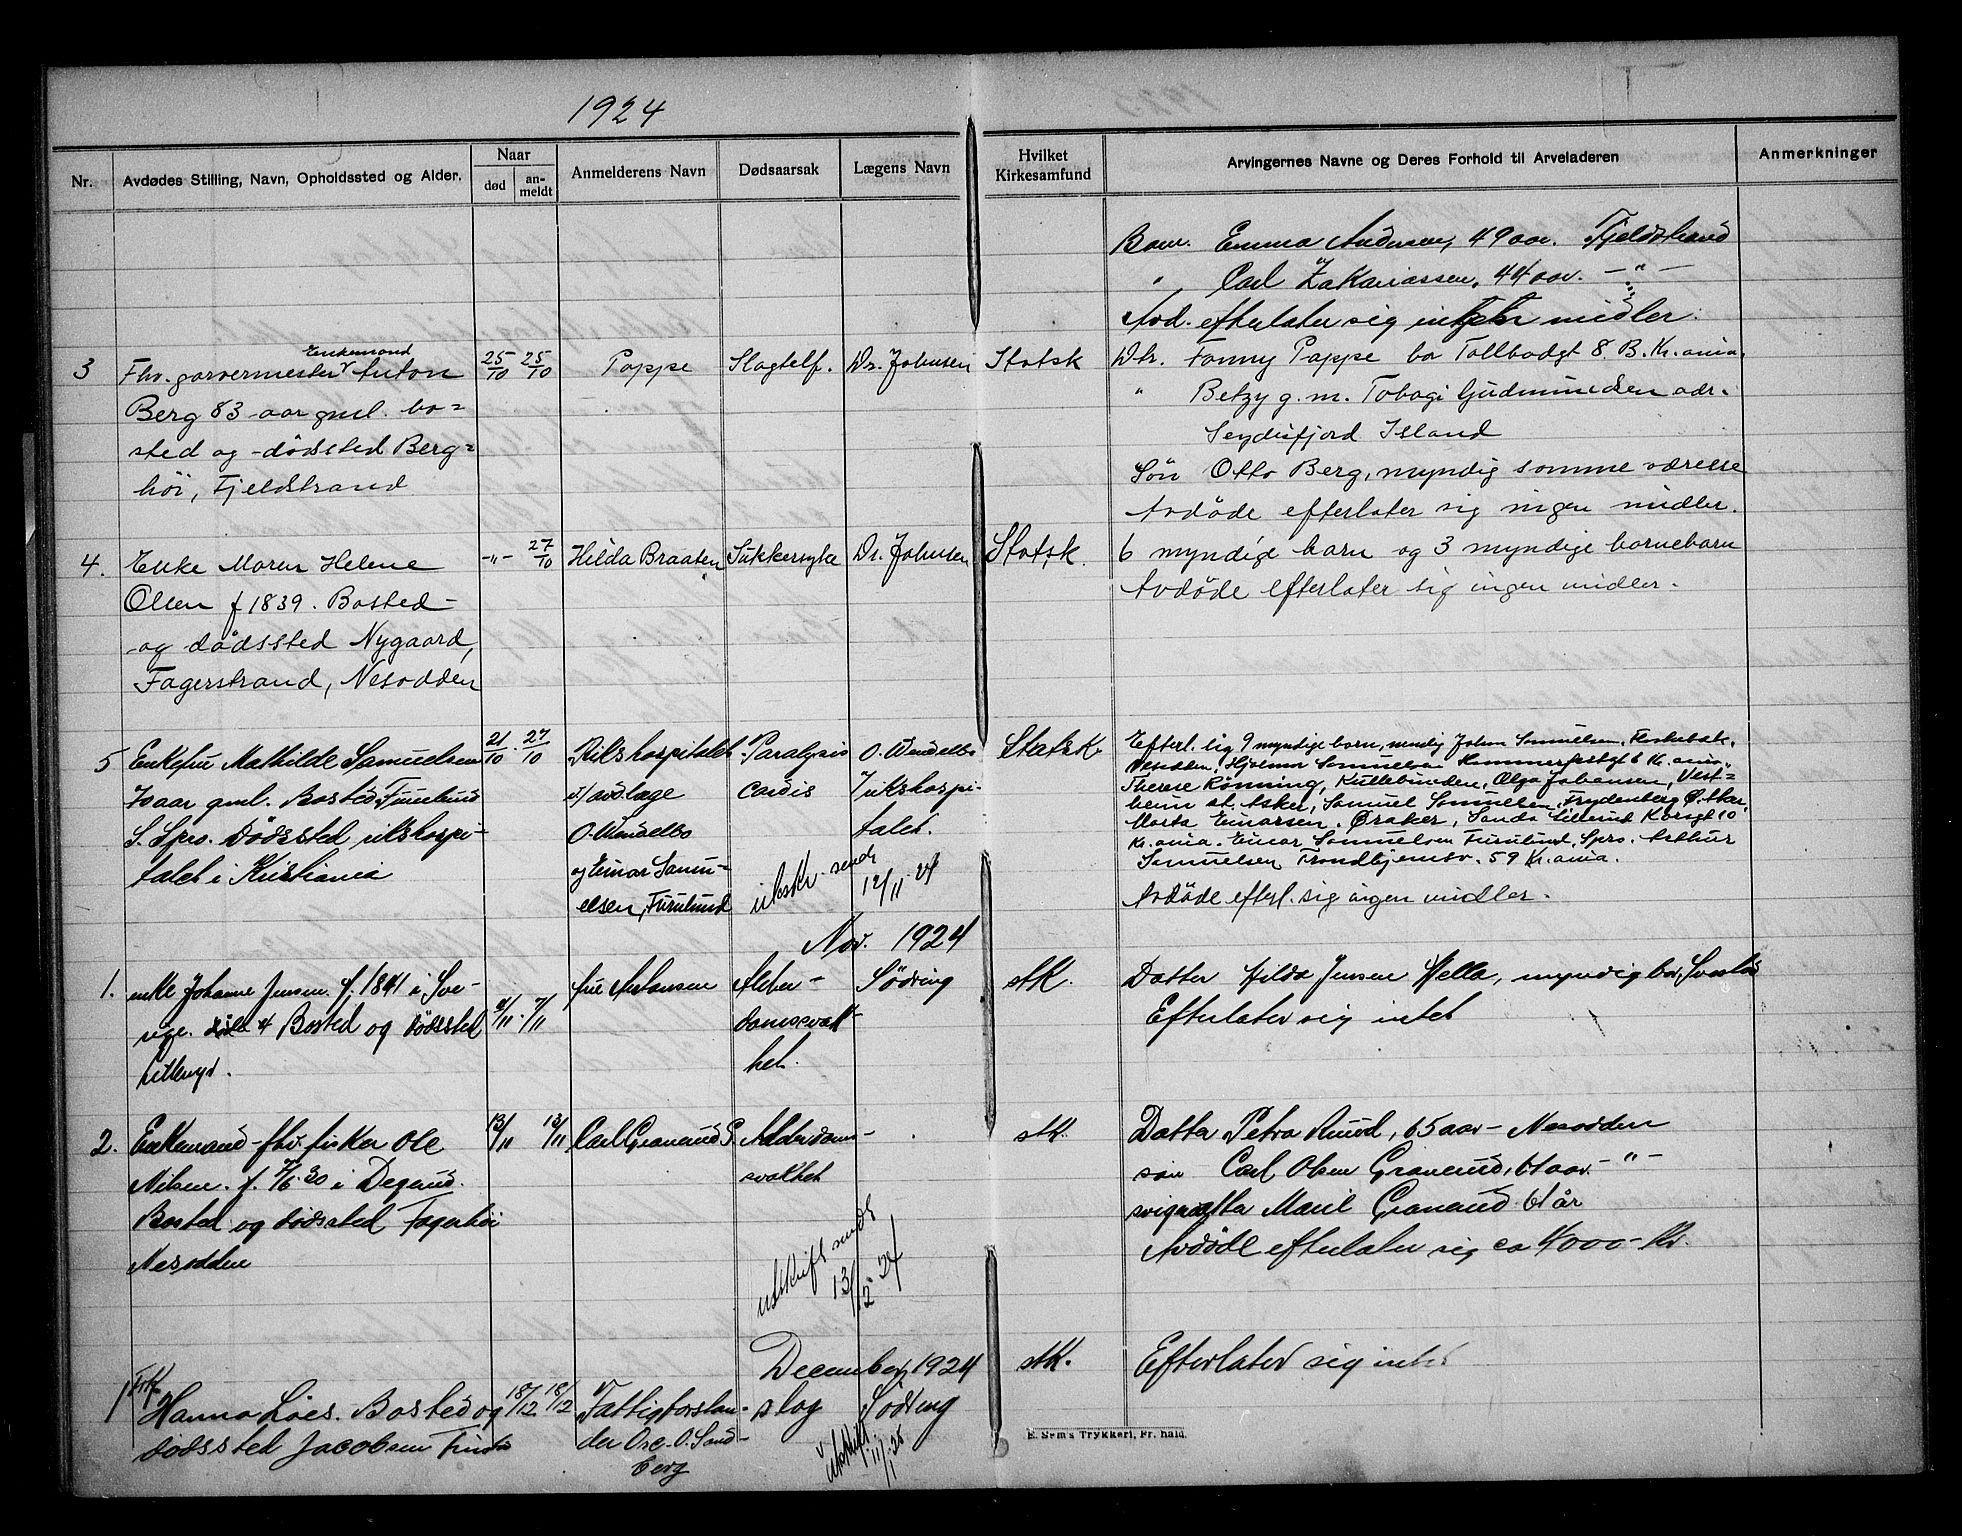 1924
Nr.
Avdødes Stilling, Navn, Opholdssted og Alder.
Naar
død
an-
meldt
Anmelderens Navn
Dødsaarsak
Lægens Navn
Hvilket
Kirkesamfund
Arvingernes Navne og Deres Forhold til Arveladeren
Anmerkninger
Barn. Emma Andersen, 49 aar. Fjeldstrand
" Carl Zakariassen, 44 aar. - " -
Avd. efterlater sig midler.
3
Enkemand
Fhv. garvermester Anton
Berg 83 aar gml. bo=
sted og -dødsted Berg=
høi, Fjeldstrand
25/10 25/10
Poppe
Slagtelf.
Dr. Johnsen
Statsk
Dtr. Fanny Poppe bo Tollbodgt 8. B. Kr.ania.
" Betzy g. m. Tobagi Gudmundsen adr.
Seydisfjord Island
Søn Otto Berg, myndig somme værelse
Avdøde efterlater sig ingen midler.
4.
Enke Maren Helene
Olsen f 1839. Bosted-
og dødssted Nygaard,
Fagerstrand, Nesodden
-"- 27/10
Hilda Braaten
Sukkersyke
Dr. Johnsen
Statsk.
6 myndige barn og 3 myndige barnebarn
Avdøde efterlater sig ingen midler.
5
Enkefru Mathilde Samuelsen
aar gml. Bosted Furulund
S. Spro. Dødssted rikshospi-
talet i Kristiania
21/10. 27/10
Rikshospitalet
v/ avdlæge
O. Wendelbo
og Einar Samu-
elsen, Furulund
Paralysis
cordis
O. Wendelbo
Rikshospi-
talet.
utskr. sendt
12/11. 24
Statsk.
Efterl. sig 9 myndige barn, nemlig Johan Samuelsen, Fiskebæk.
Nesodden, Hjalmar Samuelsen Hammerfestgt 6 Kr.ania.
Therese Rønning, Kullebunden, Olga Johansen, Vest=
heim st. Asker, Samuel Samuelsen, Frydenberg Ø.
Marta Einarsen. Øraker, Sanda Lillerud Korsgt 10
Kr.ania. Einar Samuelsen Furulund, Spro. Arthur
Samuelsen Trondhjemsv. 59 Kr.ania.
Avdøde efterl. sig ingen midler.
Nov. 1924
1.
enke Johanne Jensen. f. 1841 i Sve-
rige. Bosted og dødssted
/11. 7/11
fru
Alder-
domssvak-
het.
Sødring
stk.
Datter Hilda Jensen Hella, myndig bor
Efterlater sig intet
2.
Enkemand fhv. fisker Ole
Nilsen. f. i
Bosted og dødssted Fagerhøi
Nesodden
13/11 13/11
Carl Granerud
Alderdoms-
svakhet
utskrift sendt
13/12 24
stk.
Datter Petra Ruud, 65 aar - Nesodden
søn Carl Olsen Granerud, 61 aar. - " -
Marie Granerud 61 år
Avdøde efterlater sig ca 4000 - kr.
December 1924
1
Frk.
Hanna Løes. Bosted og
dødssted Jacobsen
18/12 18/12
v/
Fattigforstan-
der O. Sand-
berg
slag
Sødring
utskrift
11/1 25
stk.
Efterlater sig intet
E. Sem's Trykkeri, Fr. hald.